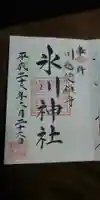 奉拝
川越総鎮守
氷川神社
平成二十八年八月二十六日